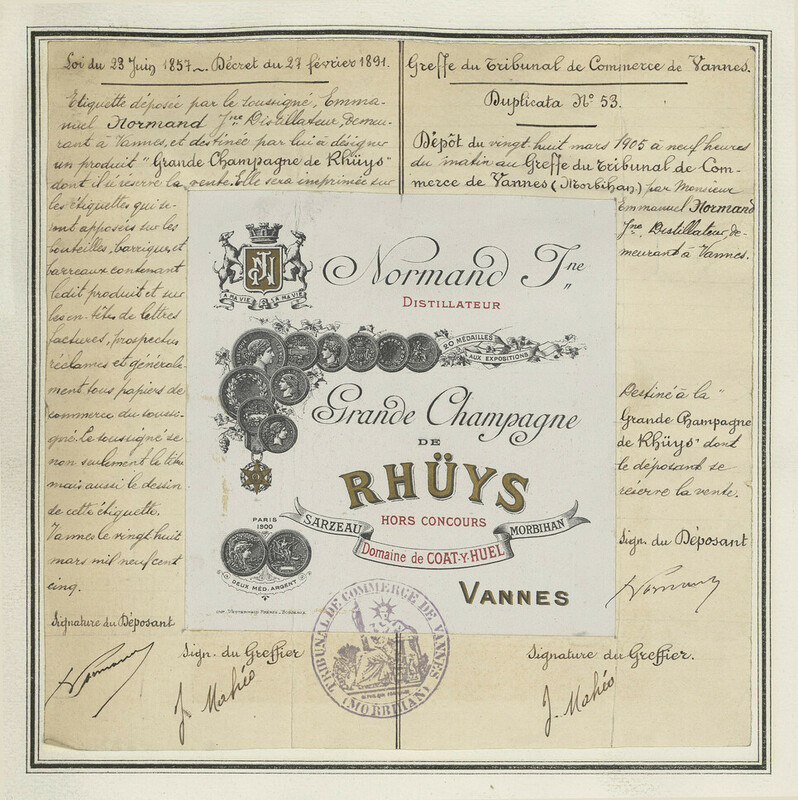 Loi du 23 Juin 1857 ~ Décret du 27 février 1891.
Etiquette déposée par le soussigné, Emma-
nuel Normand Jne Distillateur demeu-
rant à Vannes, et destinée par lui à désigner
un produit "Grande Champagne de Rhüys"
dont il a réservé la vente. Elle sera imprimée sur
les étiquettes qui se-
ront apposées sur les
bouteilles, barriques et
barreaux contenant
ledit produit et sur
les en-têtes de lettres
factures, prospectus
réclames et générale-
ment tous papiers de
commerce du soussi-
gné. Le soussigné se
non seulement le titre
mais aussi le dessin
de cette étiquette.
Vannes le vingt huit
mars mil neuf cent
cinq.
Signature du Déposant
Normand
Sign. du Greffier
J. Mahéo
Greffe du Tribunal de Commerce de Vannes.
Duplicata N° 53.
Dépôt du vingt huit mars 1905 à neuf heures
du matin au Greffe du Tribunal de Com-
merce de Vannes (Morbihan) par Monsieur
Emmanuel Normand
Jne, Distillateur, de-
meurant à Vannes.
Destiné à la "
Grande Champagne
de Rhüys" dont
le déposant se
réserve la vente.
Sign. du Déposant
Normand
Signature du Greffier.
J. Mahéo
JN
A MA VIE A MA VIE
Normand Jne
DISTILLATEUR
20 MÉDAILLES
AUX EXPOSITIONS
Grande Champagne
DE
RHÜYS
HORS CONCOURS
SARZEAU MORBIHAN
Domaine de COAT-Y-HUEL
VANNES
PARIS
1900
DEUX MÉD. ARGENT
TRIBUNAL DE COMMERCE DE VANNES
(MORBIHAN)